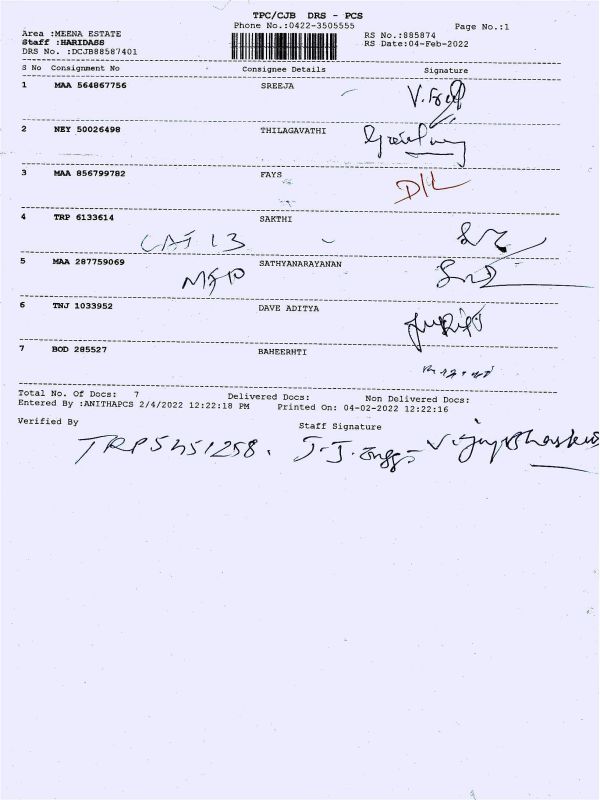 TPC/CJB DRS - PCS
Phone No.:0422-3505555 Page No.:1
Area :MEENA ESTATE RS No.:885874
Staff :HARIDASS RS Date:04-Feb-2022
DRS No. :DCJB88587401
S No Consignment No Consignee Details Signature
1 MAA 564867756 SREEJA
2 NEY 50026498 THILAGAVATHI
3 MAA 856799782 FAYS D/L
4 TRP 6133614 SAKTHI
5 MAA 287759069 SATHYANARAYANAN
6 TNJ 1033952 DAVE ADITYA
7 BOD 285527 BAHEERHTI
Total No. Of Docs: 7 Delivered Docs: Non Delivered Docs:
Entered By :ANITHAPCS 2/4/2022 12:22:18 PM Printed On: 04-02-2022 12:22:16
Verified By Staff Signature
TRP5451258.